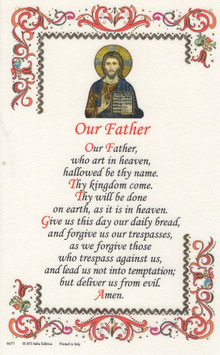 Our Father
Our Father,
who art in heaven,
hallowed be thy name.
Thy kingdom come.
Thy will be done
on earth, as it is in heaven.
Give us this day our daily bread,
and forgive us our trespasses,
as we forgive those
who trespass against us,
and lead us not into temptation;
but deliver us from evil.
Amen.
Printed in Italy